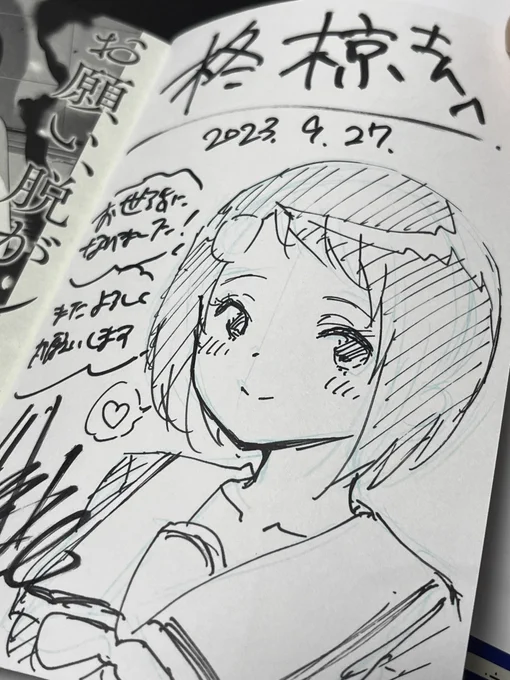 柊椋さんへ
2023. 9. 27.
お世話に
なりました!
またよろしく
お願いします
お願い、脱が